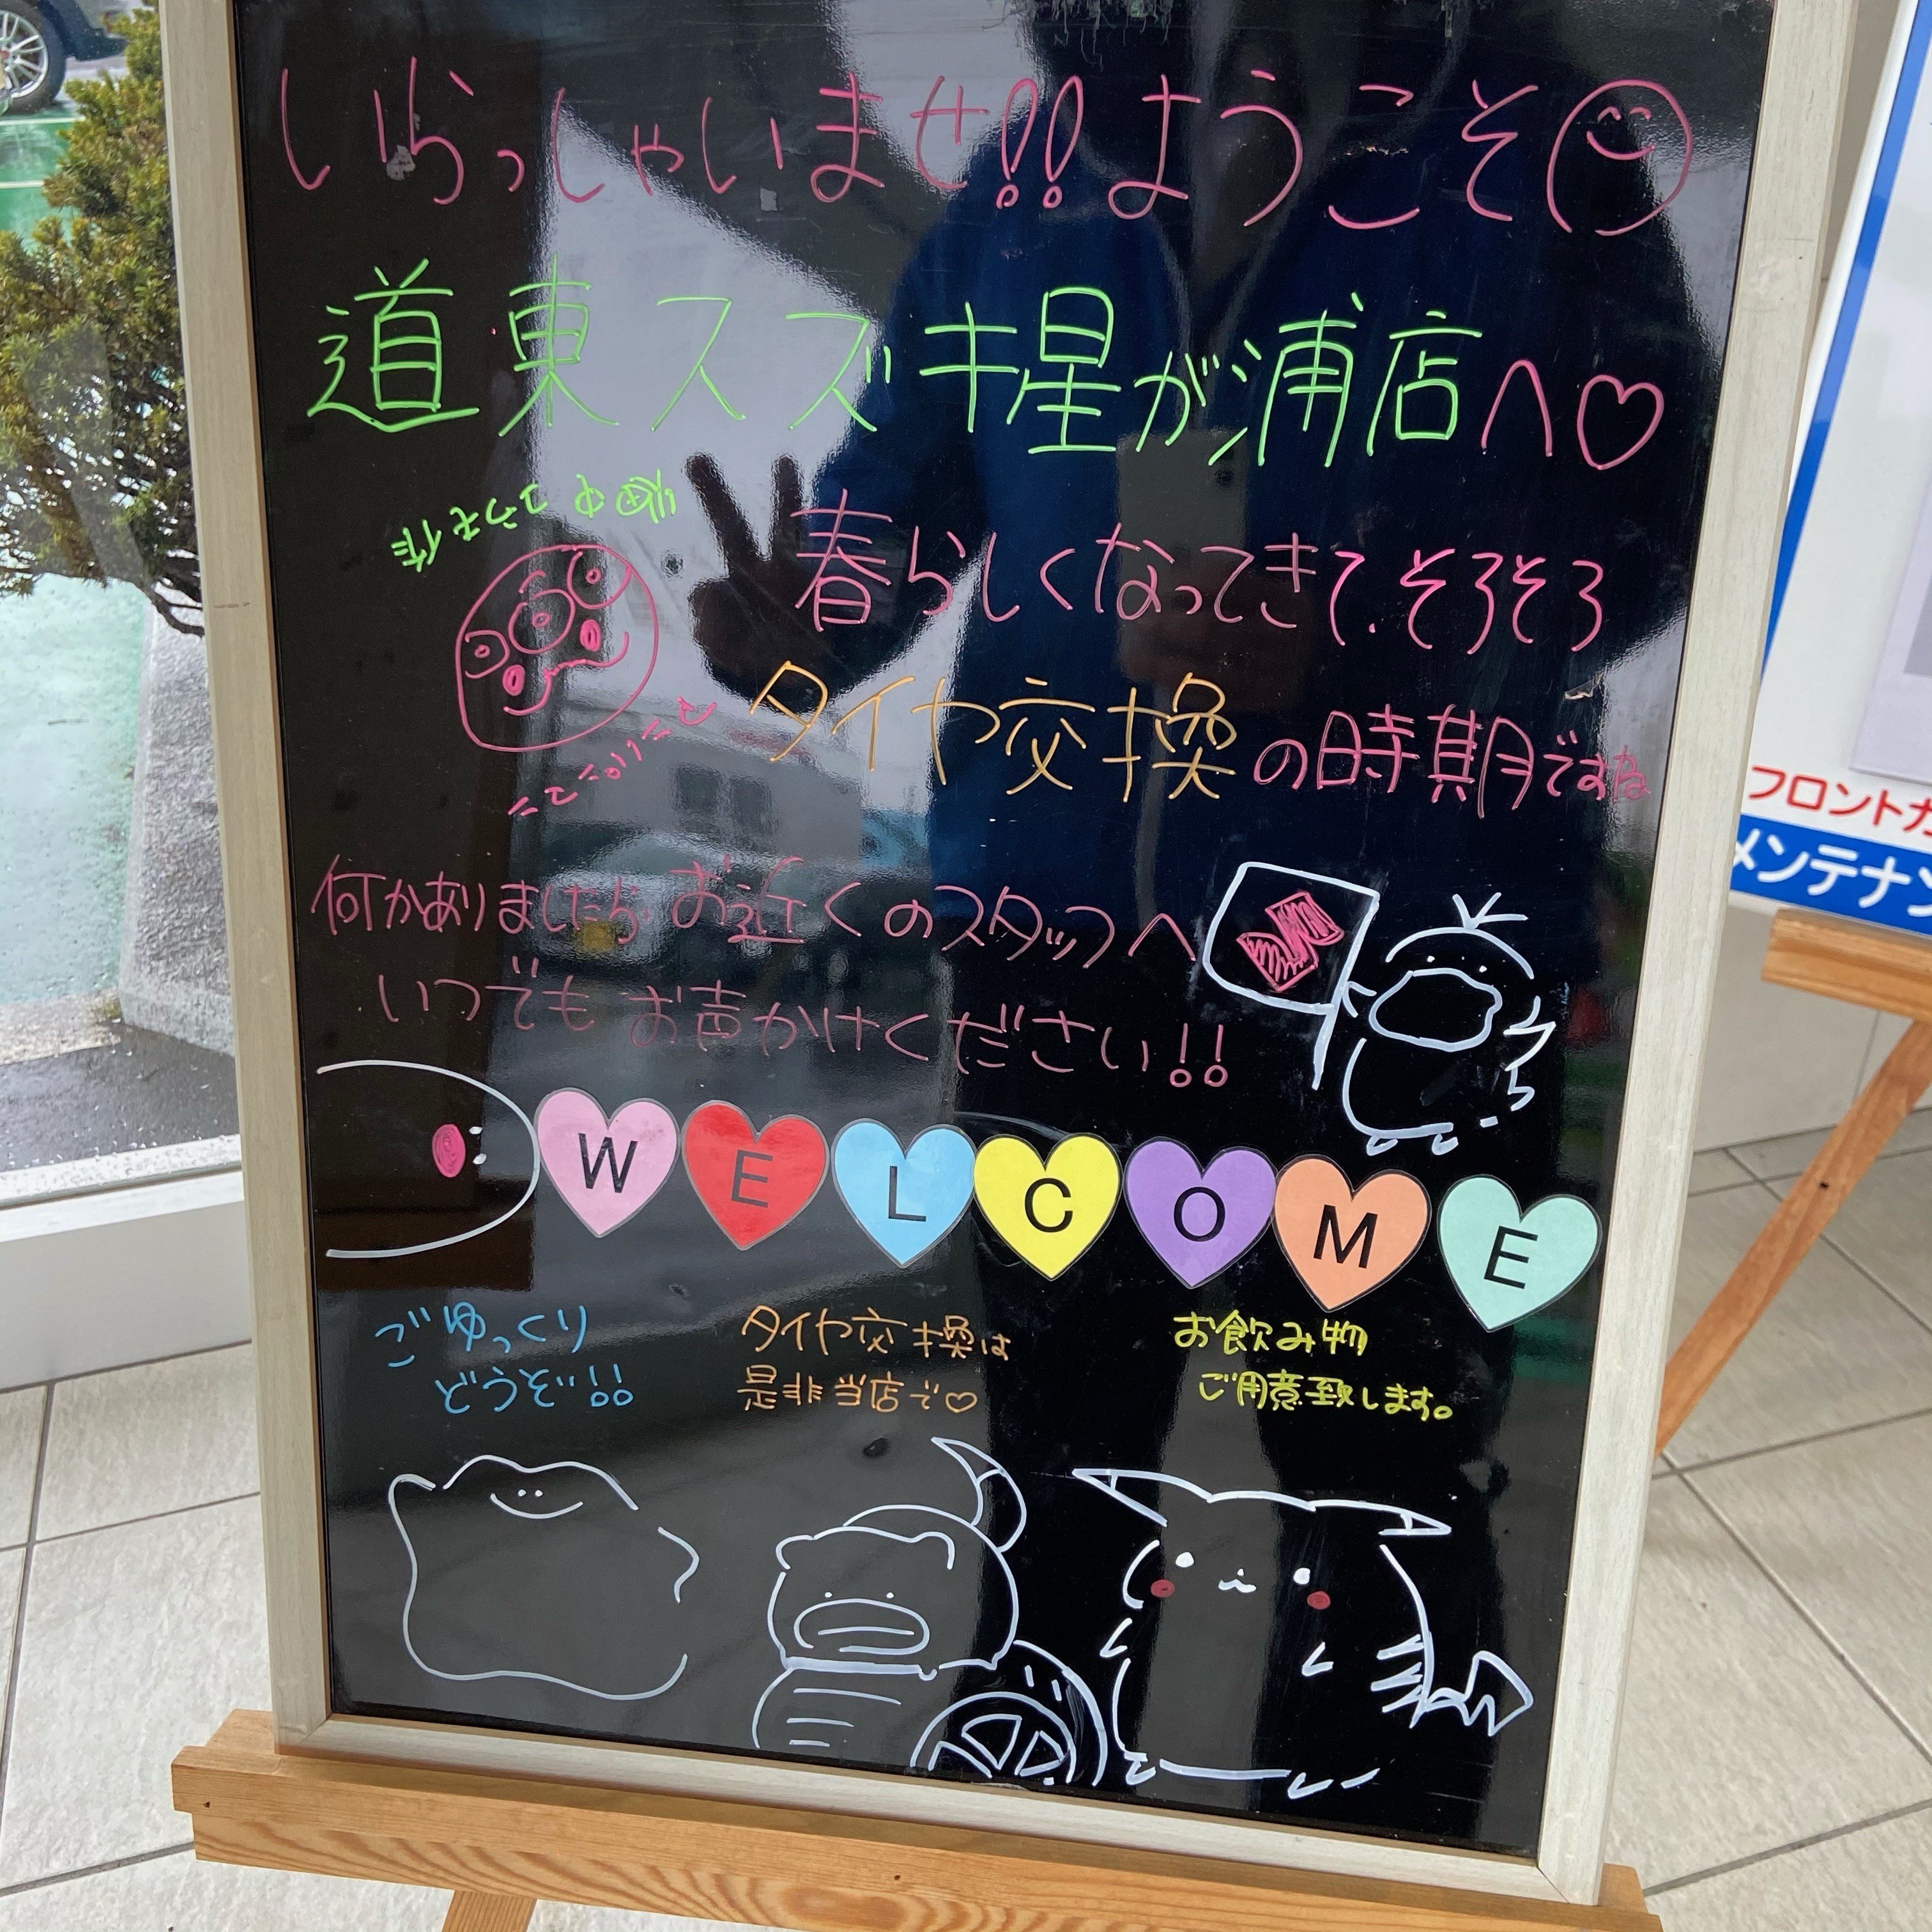 いらっしゃいませ!! ようこそ
道東スズキ星が浦店へ♡
春らしくなってきて、そろそろ
タイヤ交換の時期ですね
何かありましたら、お近くのスタッフへ
いつでもお声かけください!!
WELCOME
ごゆっくり
どうぞ!!
タイヤ交換は
是非当店で♡
お飲み物
ご用意致します。
フロントガ
メンテナン